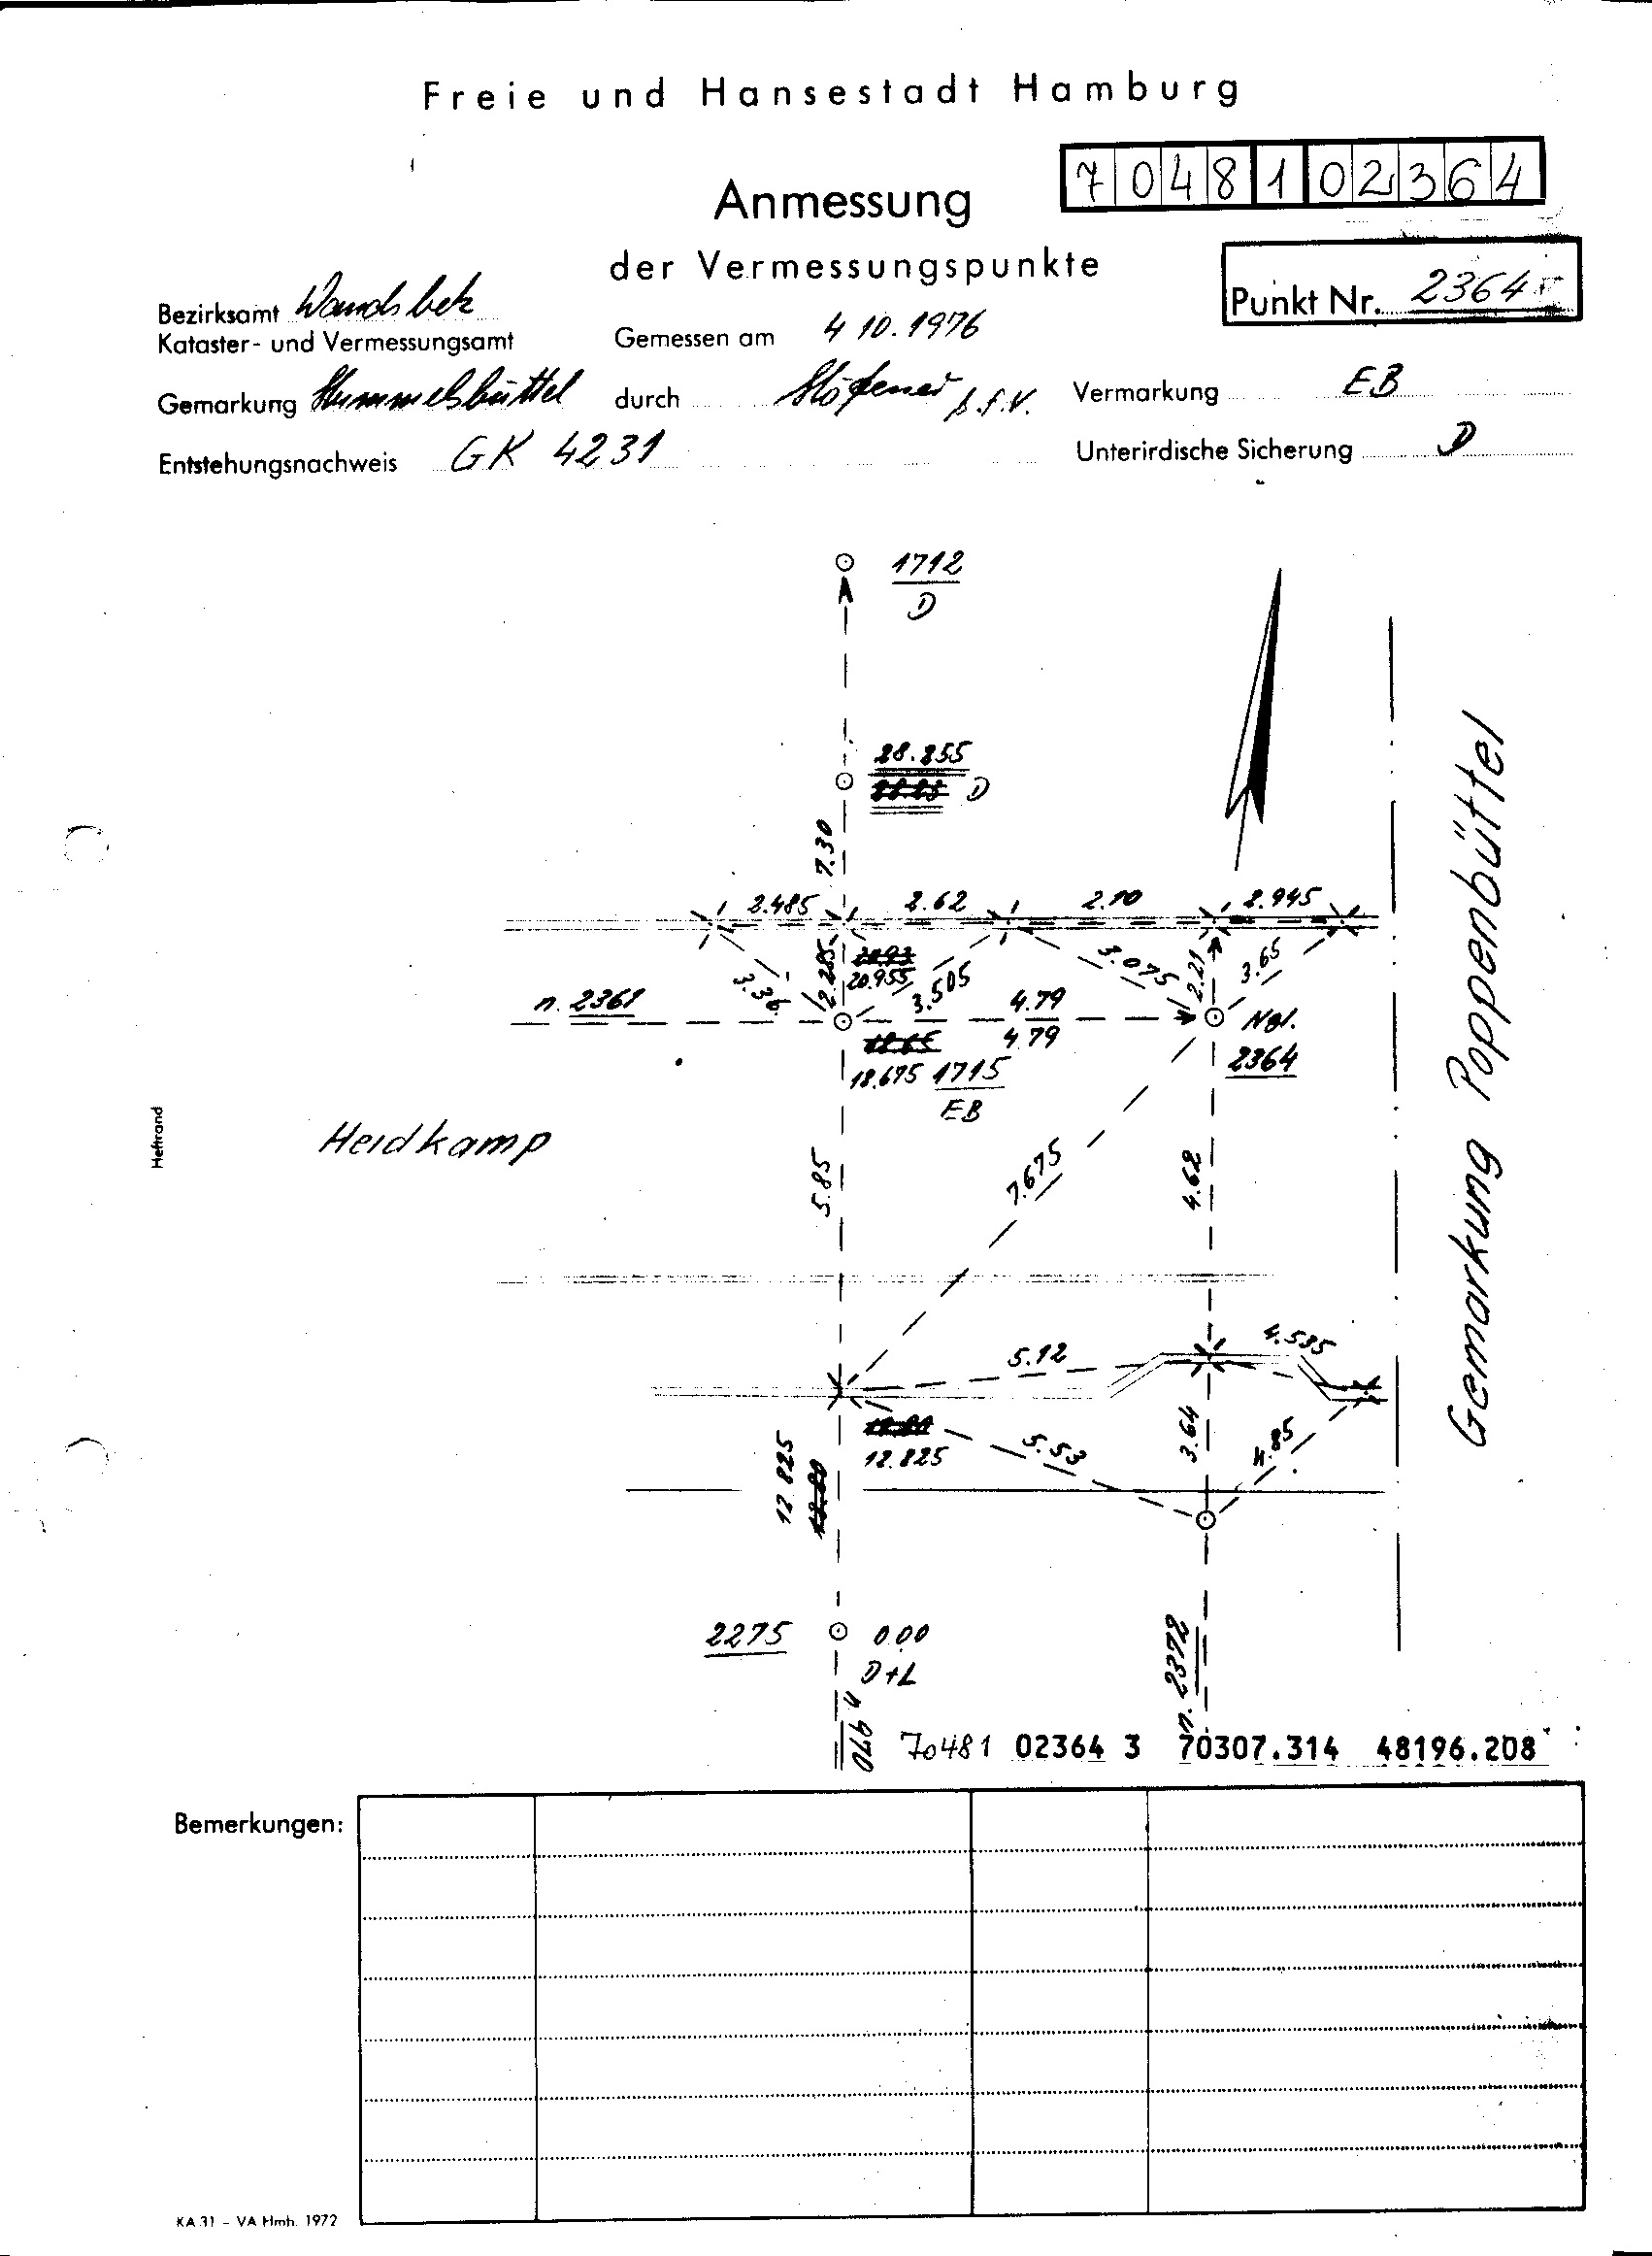 Freie und Hansestadt Hamburg
7048102364
Anmessung
der Vermessungspunkte
Punkt Nr. 2364
Bezirksamt Wandsbek
Kataster- und Vermessungsamt
Gemessen am 4 10.1976
Gemarkung Hummelsbüttel
durch
Vermarkung EB
Entstehungsnachweis GK 4231
Unterirdische Sicherung D
1712
D
28.255
D
7.30
2.485 2.62 2.10 2.945
2.285
20.955
3.36
3.505
3.075
2.21
3.65
n. 2361
4.79
4.79
Ngl.
2364
18.675 1715
EB
Heidkamp
Heftrand
5.85
7.675
4.62
Gemarkung Poppenbüttel
5.12
4.535
12.825
12.825
5.53
3.64
4.85
2275
0.00
D+L
n. 970
n. 2372
70481 02364 3 70307.314 48196.208
Bemerkungen:
KA 31 – VA Hmb. 1972